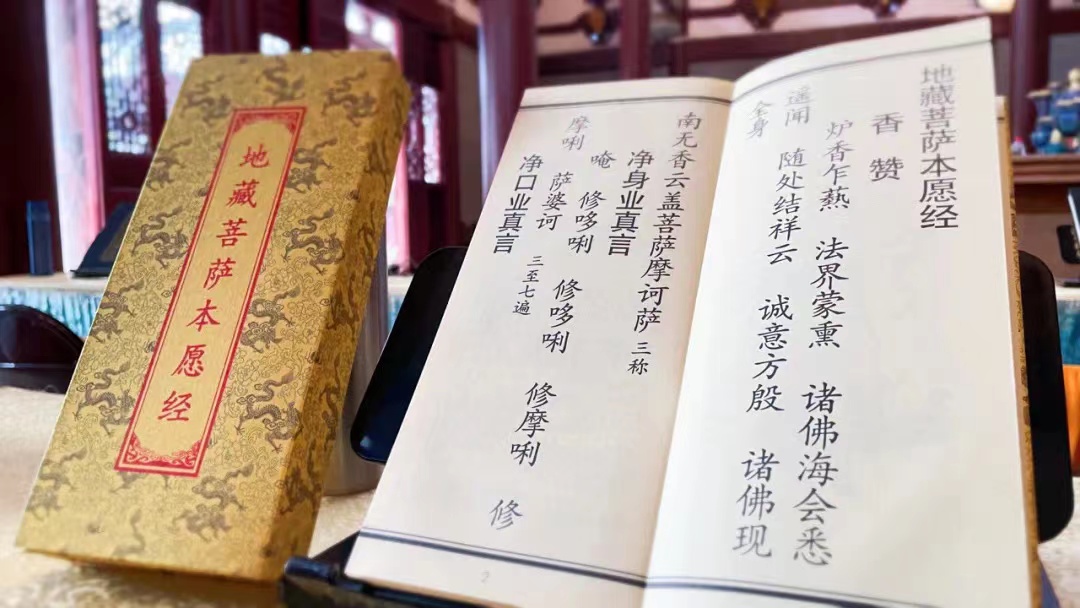 地藏菩萨本愿经
地藏菩萨本愿经
香赞
炉香乍爇 法界蒙熏 诸佛海会悉
遥闻 随处结祥云 诚意方殷 诸佛现
全身
南无香云盖菩萨摩诃萨 三称
净身业真言
唵 修哆唎 修哆唎 修摩唎 修
摩唎 萨婆诃 三至七遍
净口业真言
2